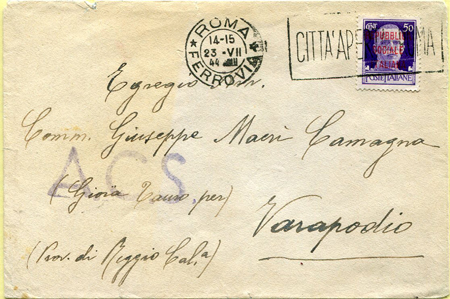 ROMA
FERROVIA
14-15
23·VII
44
CITTA' APERTA ROMA
CENT. 50
REPUBBLICA
SOCIALE
ITALIANA
POSTE ITALIANE
Egregio
Comm. Giuseppe Macrì Camagna
ACS
(Gioia Tauro per)
Varapodio
(Prov. di Reggio Cal.a)